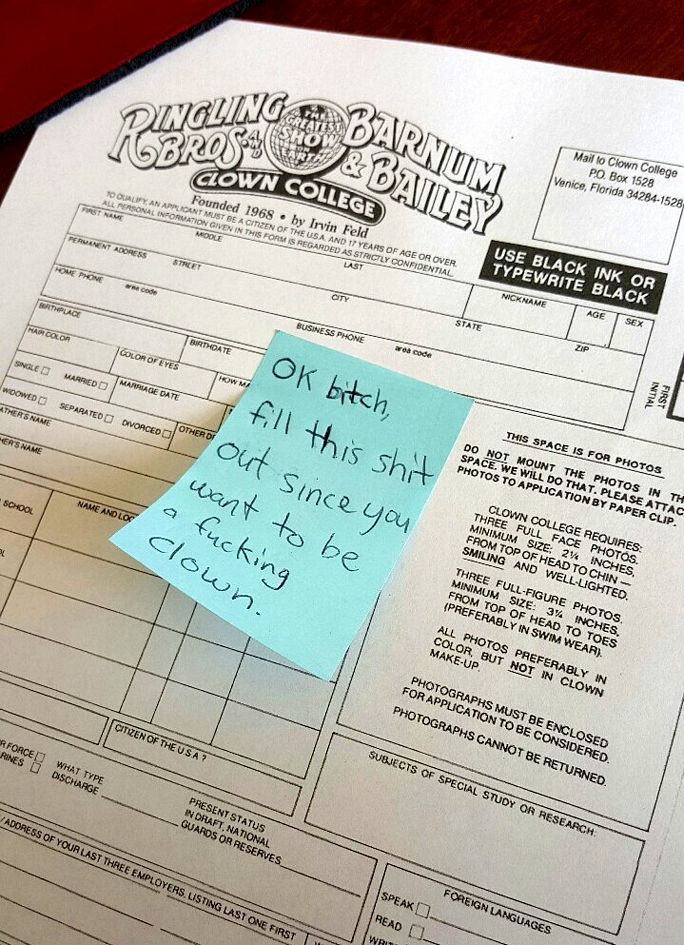 RINGLING BROS. AND BARNUM & BAILEY
THE GREATEST SHOW ON EARTH
CLOWN COLLEGE
Founded 1968 • by Irvin Feld
TO QUALIFY, AN APPLICANT MUST BE A CITIZEN OF THE U.S.A. AND 17 YEARS OF AGE OR OVER.
ALL PERSONAL INFORMATION GIVEN IN THIS FORM IS REGARDED AS STRICTLY CONFIDENTIAL.
Mail to Clown College
P.O. Box 1528
Venice, Florida 34284-1528
USE BLACK INK OR
TYPEWRITE BLACK
FIRST NAME MIDDLE LAST NICKNAME AGE SEX
PERMANENT ADDRESS STREET CITY STATE ZIP
HOME PHONE area code BUSINESS PHONE area code
FIRST INITIAL
BIRTHPLACE BIRTHDATE
HAIR COLOR COLOR OF EYES HOW
SINGLE MARRIED MARRIAGE DATE
WIDOWED SEPARATED DIVORCED OTHER
ATHER'S NAME
HER'S NAME
SCHOOL NAME AND LOC
OK bitch,
fill this shit
out since you
want to be
a fucking
clown.
THIS SPACE IS FOR PHOTOS
DO NOT MOUNT THE PHOTOS IN TH
SPACE. WE WILL DO THAT. PLEASE ATTAC
PHOTOS TO APPLICATION BY PAPER CLIP.
CLOWN COLLEGE REQUIRES:
THREE FULL FACE PHOTOS.
MINIMUM SIZE: 2¼ INCHES,
FROM TOP OF HEAD TO CHIN —
SMILING AND WELL-LIGHTED.
THREE FULL-FIGURE PHOTOS.
MINIMUM SIZE: 3¼ INCHES,
FROM TOP OF HEAD TO TOES
(PREFERABLY IN SWIM WEAR).
ALL PHOTOS PREFERABLY IN
COLOR, BUT NOT IN CLOWN
MAKE-UP.
PHOTOGRAPHS MUST BE ENCLOSED
FOR APPLICATION TO BE CONSIDERED.
PHOTOGRAPHS CANNOT BE RETURNED.
CITIZEN OF THE U.S.A.?
SUBJECTS OF SPECIAL STUDY OR RESEARCH:
R FORCE
RINES
WHAT TYPE
DISCHARGE
PRESENT STATUS
IN DRAFT, NATIONAL
GUARDS OR RESERVES
/ ADDRESS OF YOUR LAST THREE EMPLOYERS, LISTING LAST ONE FIRST
FOREIGN LANGUAGES
SPEAK
READ
WRIT